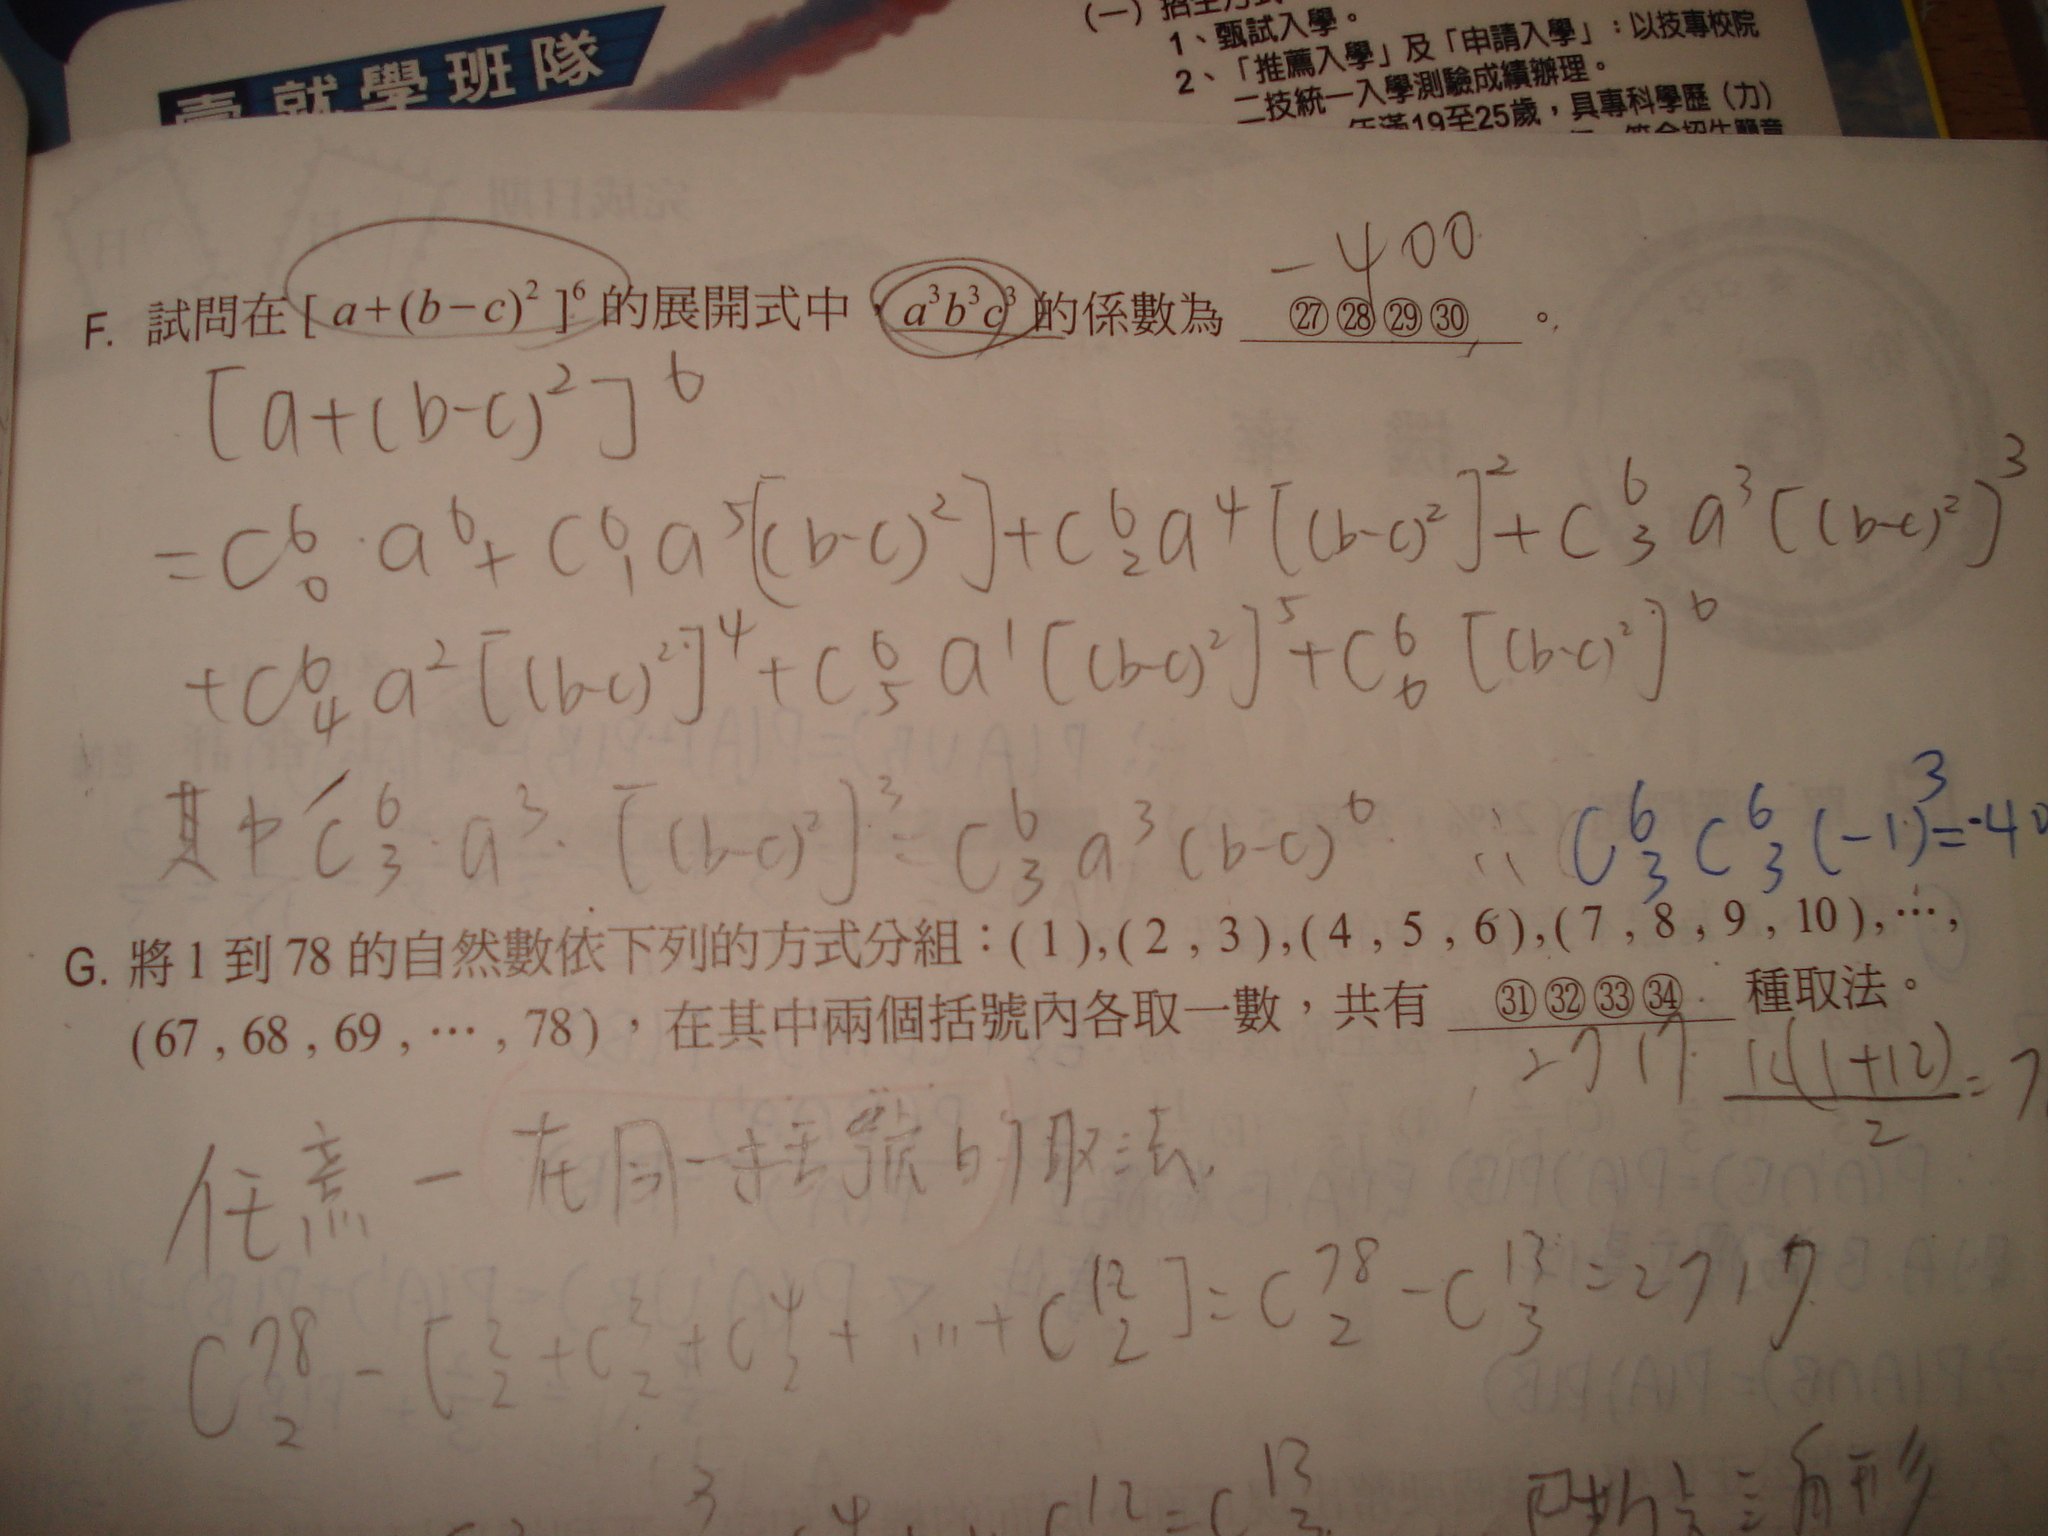 壹就學班隊
1、甄試入學。
2、「推薦入學」及「申請入學」：以技專校院
二技統一入學測驗成績辦理。
年滿19至25歲，具專科學歷（力）
-400
F. 試問在[a+(b-c)²]⁶的展開式中，a³b³c³的係數為 ㉗㉘㉙㉚ 。
[a+(b-c)²]⁶
=C⁶₀·a⁶+C⁶₁a⁵[(b-c)²]+C⁶₂a⁴[(b-c)²]²+C⁶₃a³[(b-c)²]³
+C⁶₄a²[(b-c)²]⁴+C⁶₅a¹[(b-c)²]⁵+C⁶₆[(b-c)²]⁶
其中C⁶₃·a³·[(b-c)²]³=C⁶₃a³(b-c)⁶ ∴C⁶₃C⁶₃(-1)³=-40
G. 將1到78的自然數依下列的方式分組：(1),(2,3),(4,5,6),(7,8,9,10),…,
(67,68,69,…,78)，在其中兩個括號內各取一數，共有 ㉛㉜㉝㉞ 種取法。
2717 12(1+12)/2=7
任意－在同一括號的取法.
C⁷⁸₂-[C²₂+C³₂+C⁴₂+…+C¹²₂]=C⁷⁸₂-C¹³₃=2717
C¹²=C¹³₃ 巴斯卡三角形